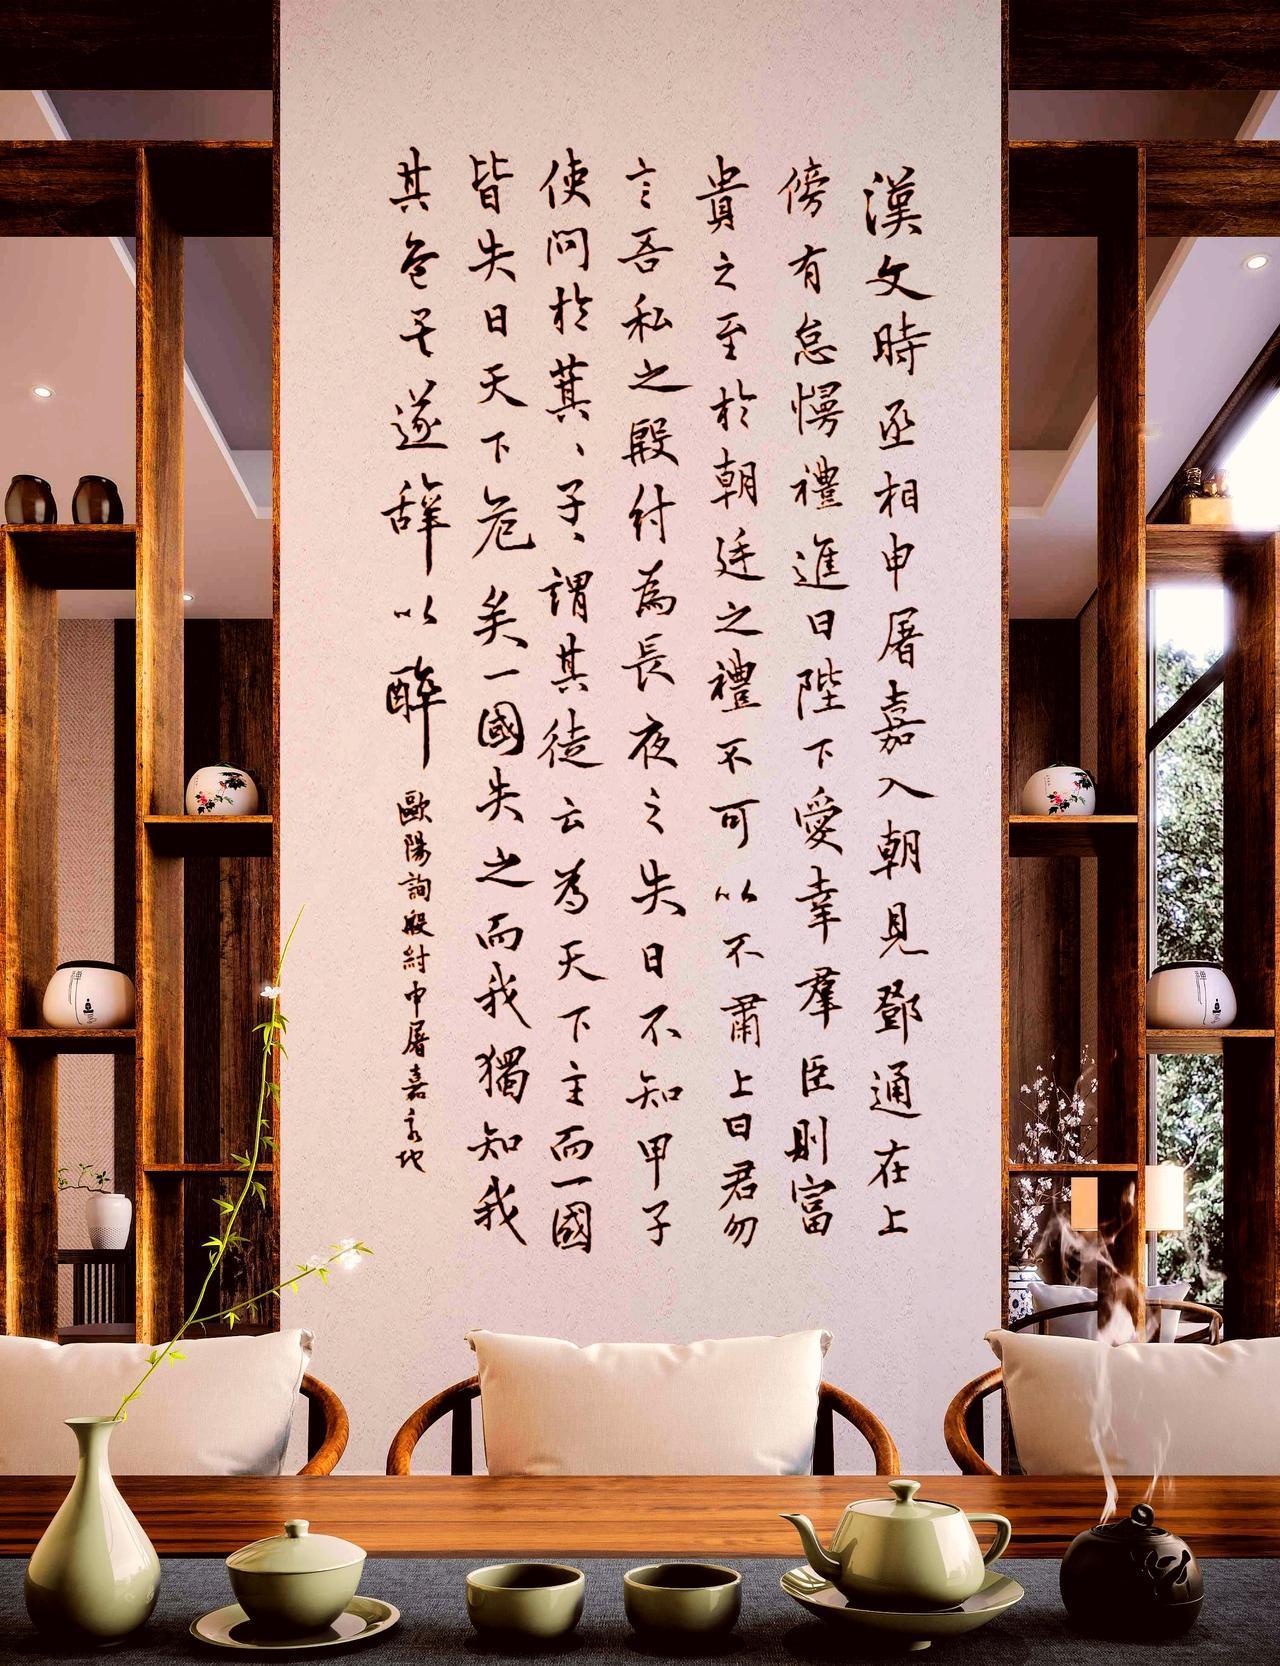 漢文時丞相申屠嘉入朝見鄧通在上
傍有怠慢禮進曰陛下愛幸羣臣則富
貴之至於朝廷之禮不可以不肅上曰君勿
言吾私之殷紂為長夜之失日不知甲子
使問於萁〻子〻謂其徒云為天下主而一國
皆失日天下危矣一國失之而我獨知我
其危矣遂辭以醉
歐陽詢殷紂申屠嘉